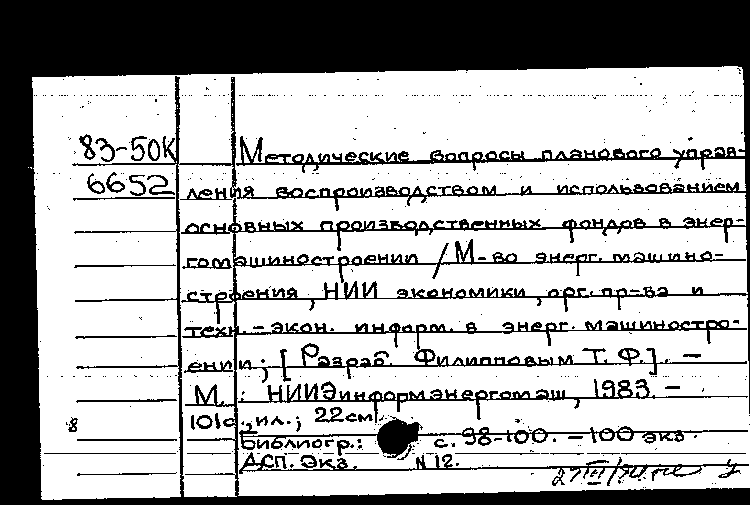 83-50К Методические вопросы планового управ-
6652 ления воспроизводством и использованием
основных производственных фондов в энер-
гомашиностроении / М-во энерг. машино-
строения, НИИ экономики, орг. пр-ва и
техн.-экон. информ. в энерг. машиностро-
ении; [Разраб. Филипповым Т. Ф.]. —
М.: НИИЭинформэнергомаш, 1983. —
101с., ил.; 22см.
Библиогр.: с. 98-100. — 100 экз.
ДСП. Экз. N 12.